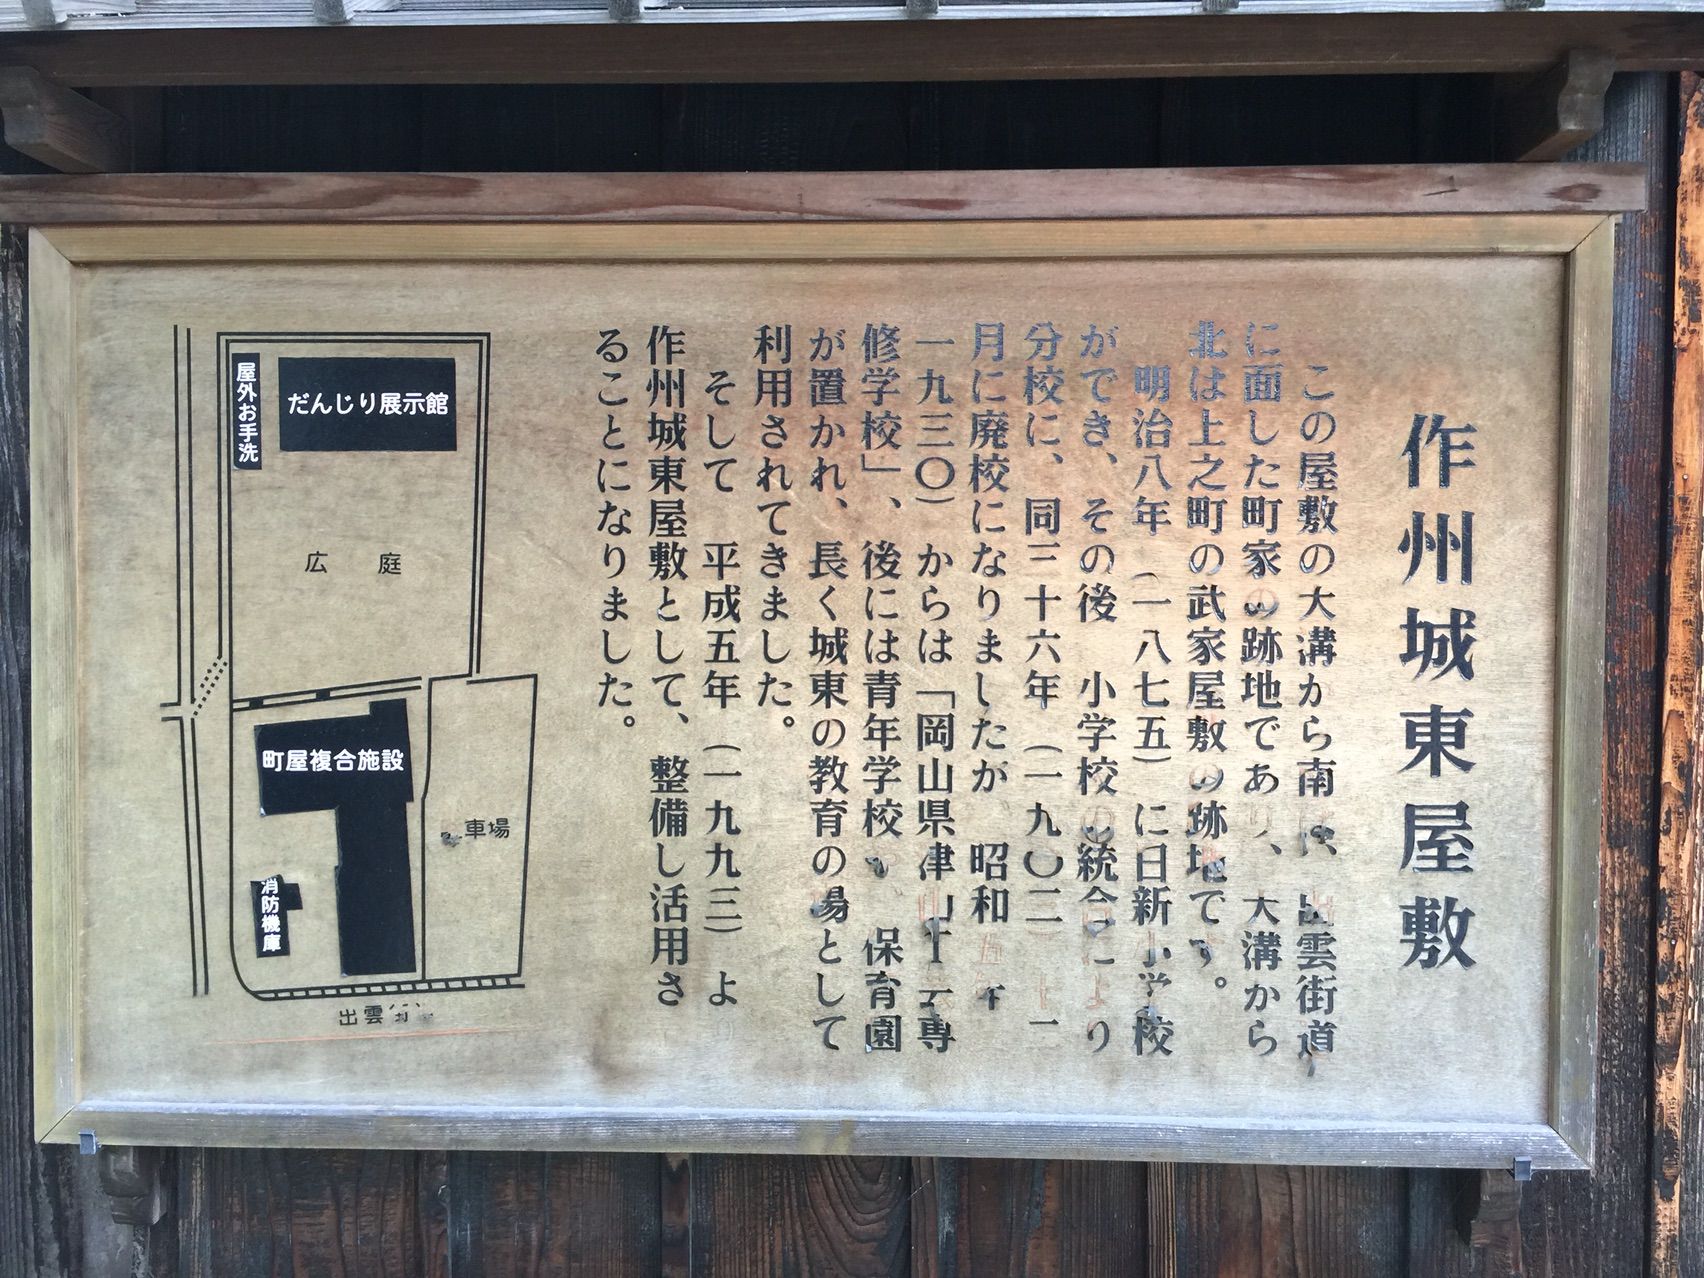 作州城東屋敷
この屋敷の大溝から南は、出雲街道
に面した町家の跡地であり、大溝から
北は上之町の武家屋敷の跡地です。
明治八年(一八七五)に日新小学校
ができ、その後 小学校の統合により
分校に、同三十六年(一九〇三)十一
月に廃校になりましたが 昭和五年
一九三〇)からは「岡山県津山工芸専
修学校」、後には青年学校や、保育園
が置かれ、長く城東の教育の場として
利用されてきました。
そして 平成五年(一九九三)より
作州城東屋敷として、整備し活用さ
ることになりました。
だんじり展示館
屋外お手洗
広庭
町屋複合施設
車場
消防機庫
出雲街